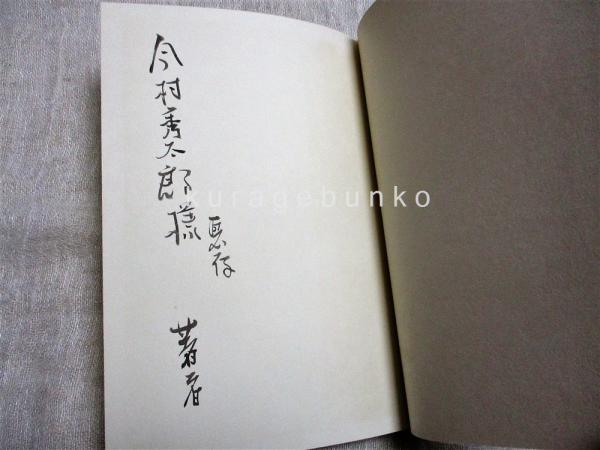 今村秀太郎様
恵存
著者
kuragebunko